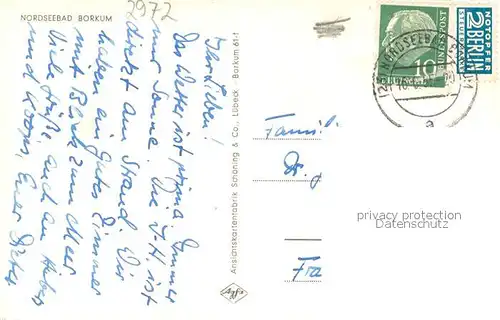 NORDSEEBAD BORKUM
2972
Ihr Lieben!
Das Wetter ist prima. Immer
nur Sonne. Die J-H. ist
direkt am Strand. Wir
haben ein gutes Zimmer
mit Blick zum Meer
Viele Grüße, auch an
und Euer Dieter
Ansichtskartenfabrik Schöning & Co., Lübeck Borkum 61-1
Agfa
NORDSEEBAD
10
BUNDESPOST
NOTOPFER
2
BERLIN
STEUERMARKE
a
Famil
Dr. J
Fra
privacy protection
Datenschutz